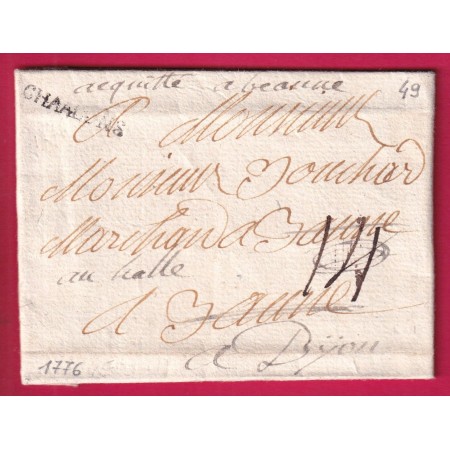 acquitté a beaune
49
CHAALONS
A Monsieur
Monsieur Bouchard
Marchand a Beaune
au halle
a Beaune
a Dijon
1776